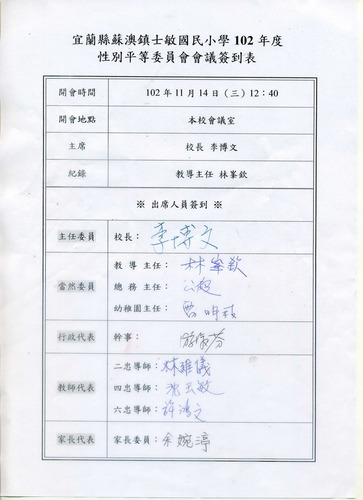 宜蘭縣蘇澳鎮士敏國民小學 102 年度
性別平等委員會會議簽到表
開會時間 102 年 11 月 14 日（三）12：40
開會地點 本校會議室
主席 校長 李博文
紀錄 教導主任 林峯欽
※ 出席人員簽到 ※
主任委員 校長： 李博文
當然委員 教導主任： 林峯欽
總務主任：
幼稚園主任：
行政代表 幹事：
教師代表 二忠導師： 林雅儀
四忠導師： 沈玉敏
六忠導師： 許鴻文
家長代表 家長委員： 余婉渟